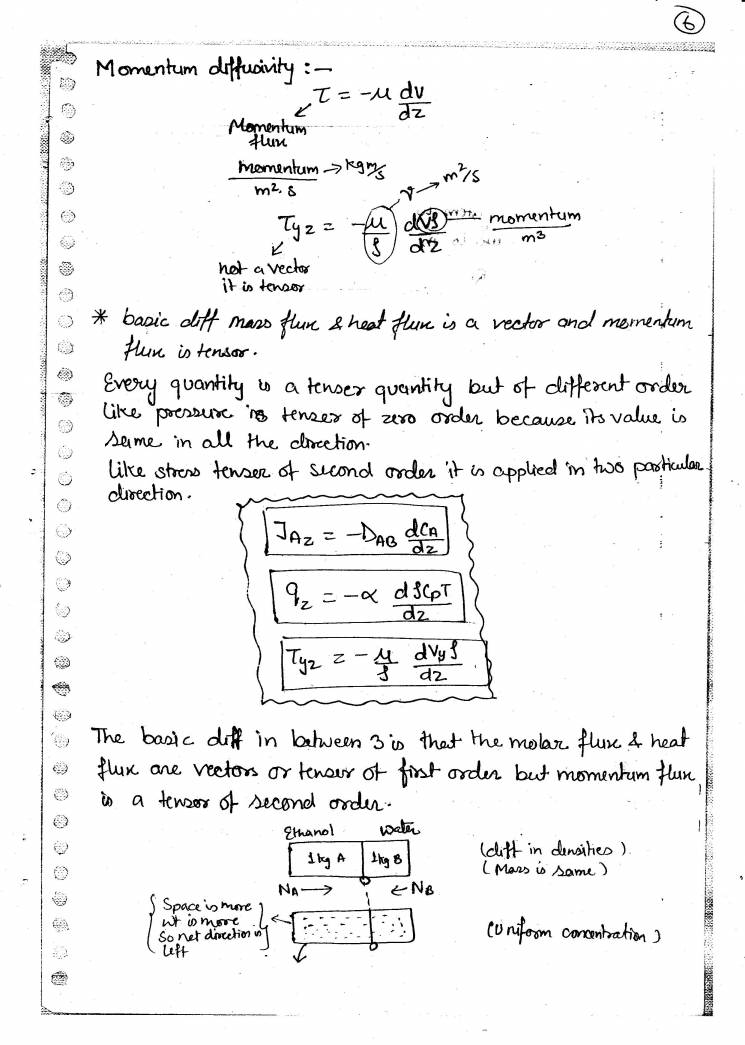 6
Momentum diffusivity :-
τ = -μ dv/dz
Momentum
flux
momentum/m². s → kgm/s
ν → m²/s
τyz = -μ/ρ dVρ/dz momentum/m³
not a vector
it is tensor
* basic diff mass flux & heat flux is a vector and momentum
flux is tensor.
Every quantity is a tenser quantity but of different order
like pressure is tenser of zero order because its value is
same in all the direction.
like stress tenser of second order it is applied in two particular
direction.
JAz = -DAB dCA/dz
qz = -α dρCpT/dz
τyz = -μ/ρ dVyρ/dz
The basic diff in between 3 is that the molar flux & heat
flux are vectors or tensor of first order but momentum flux
is a tensor of second order.
Ethanol Water
1kg A 1kg B (diff in densities)
(Mass is same)
NA → ← NB
Space is more
wt is more
So net direction is
left
(Uniform concentration)